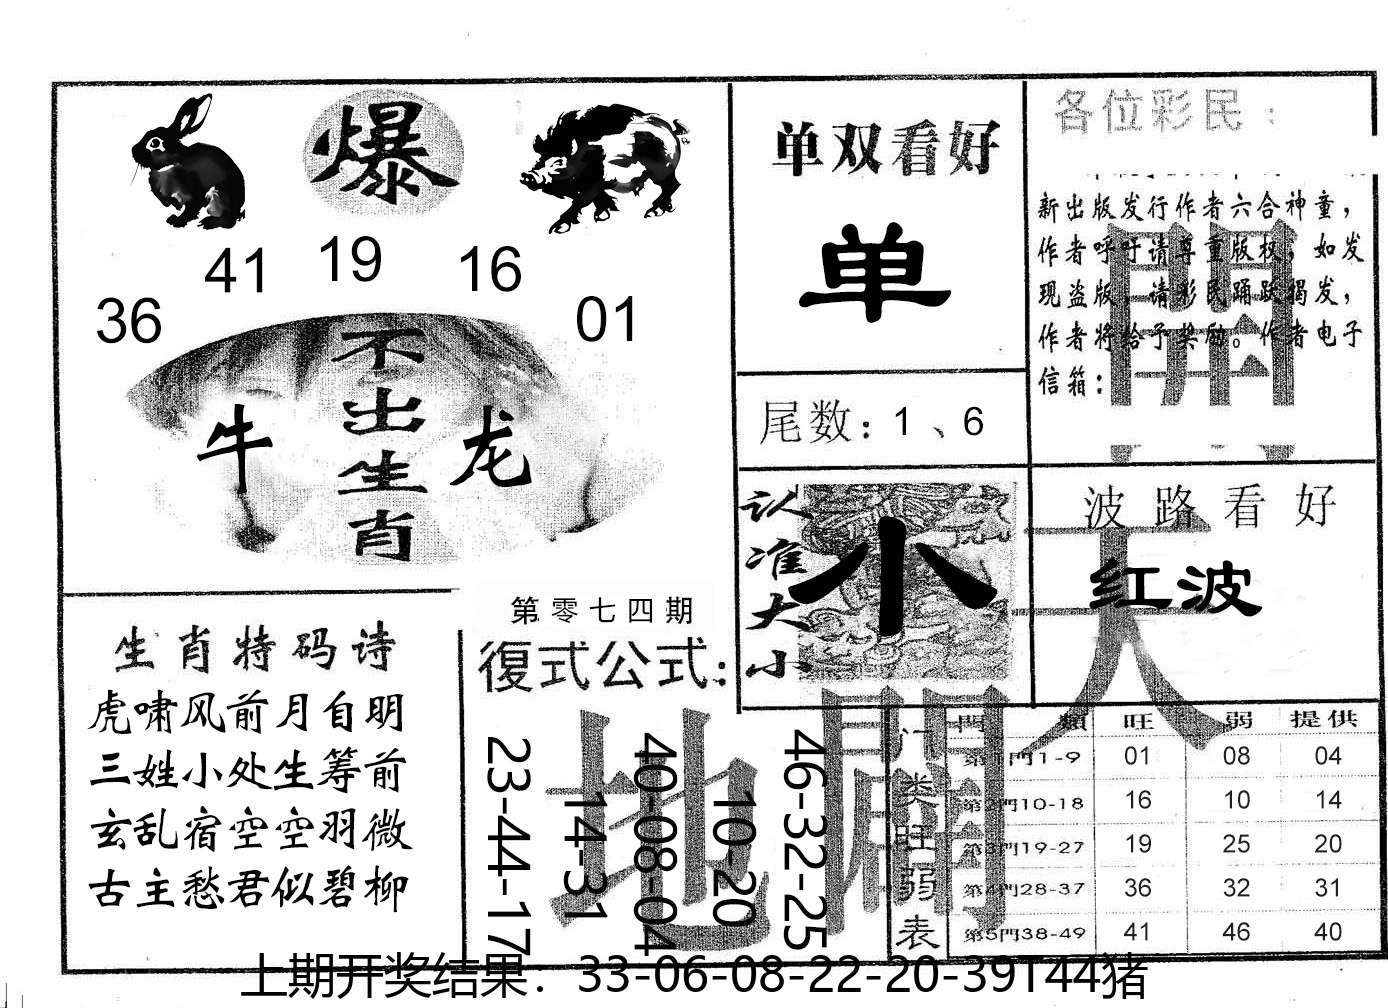 爆
41 19 16
36 01
不出生肖
牛 龙
单双看好
单
尾数：1、6
各位彩民：
新出版发行作者六合神童，
作者呼吁请尊重版权，如发
现盗版，请彩民踊跃揭发，
作者将给予奖励。作者电子
信箱：
開
认准大小
小
波路看好
红波
天
生肖特码诗
虎啸风前月自明
三姓小处生筹前
玄乱宿空空羽微
古主愁君似碧柳
第零七四期
復式公式：
23-44-17
14-31
40-08-04
10-20
46-32-25
地
闢
门类旺弱表
門類 旺 弱 提供
第1門1-9 01 08 04
第2門10-18 16 10 14
第3門19-27 19 25 20
第4門28-37 36 32 31
第5門38-49 41 46 40
上期开奖结果：33-06-08-22-20-39T44猪